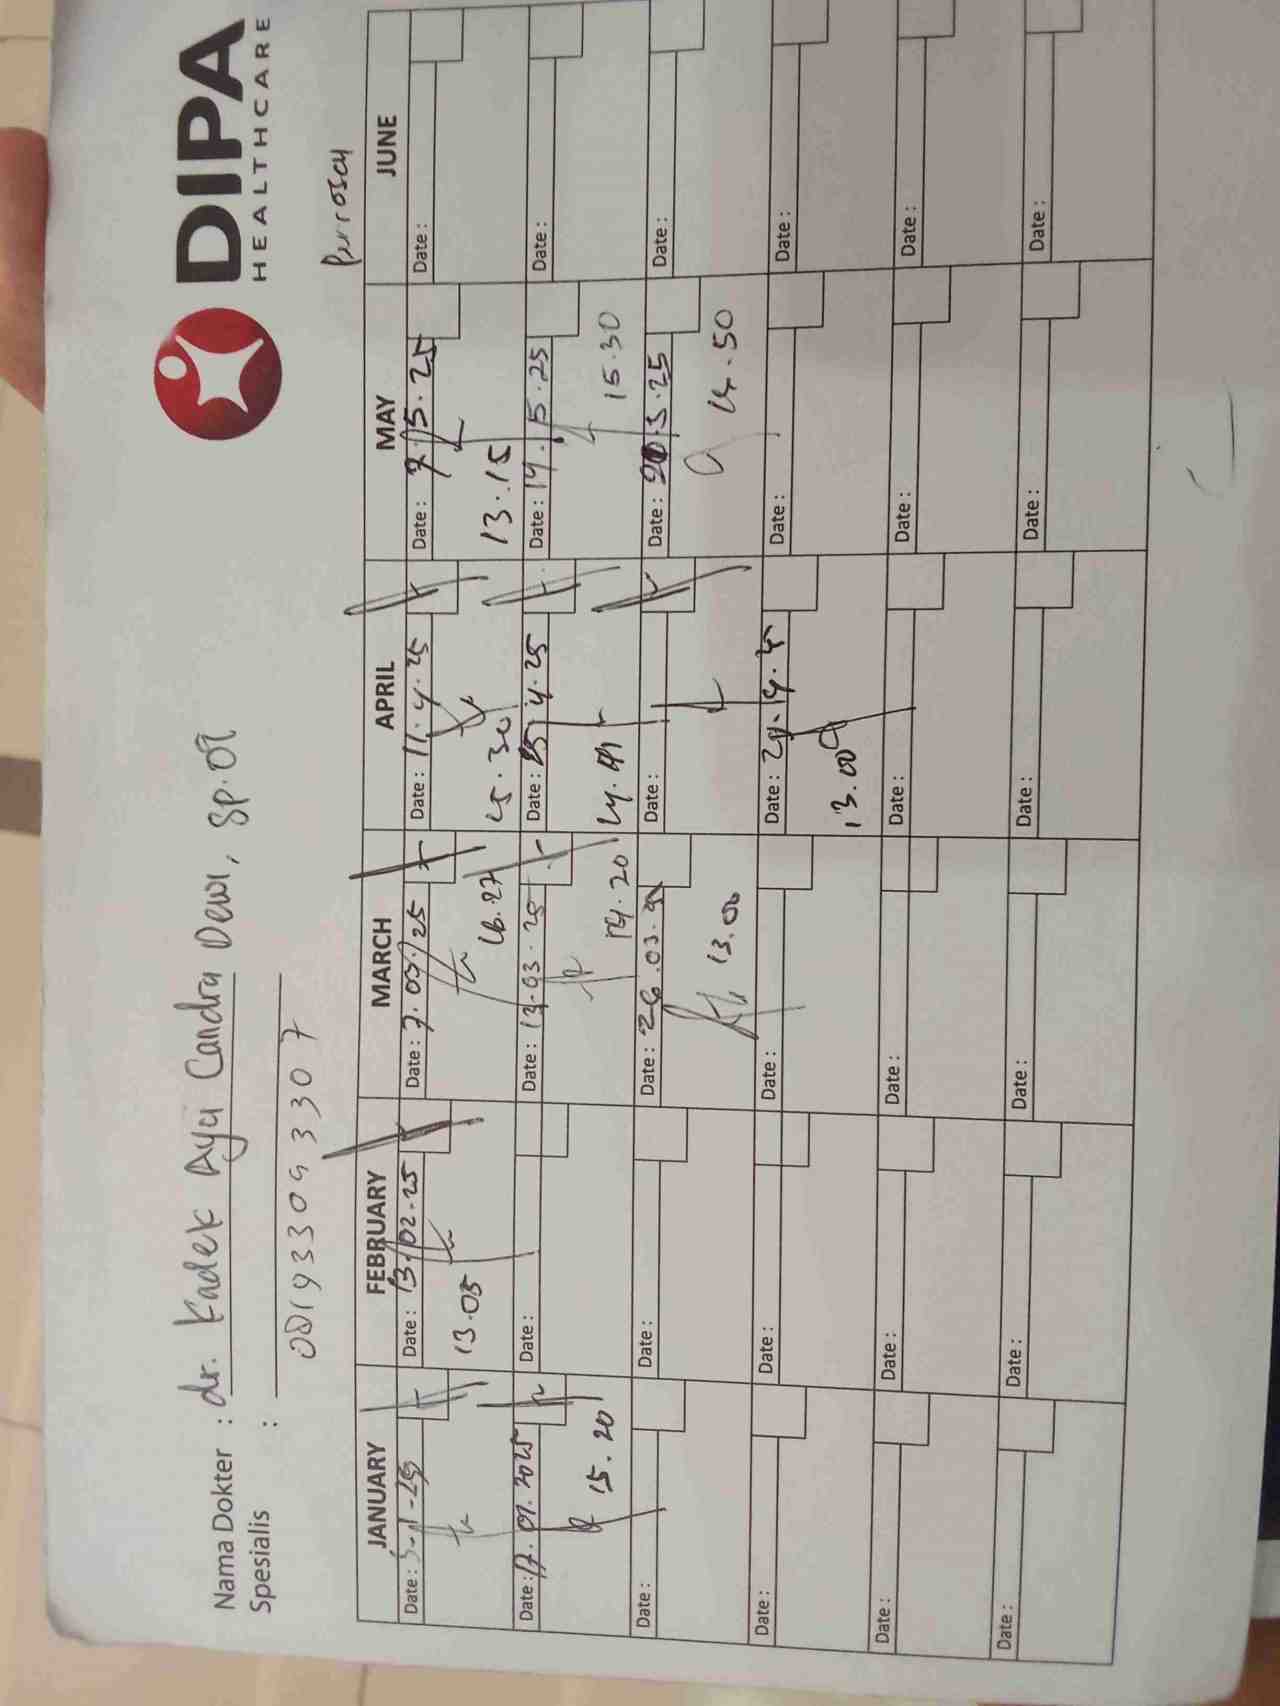 DIPA
HEALTHCARE
Nama Dokter : dr. Kadek Ayu Candra Dewi, Sp.OG
Spesialis :
081933093307
JANUARY FEBRUARY MARCH APRIL MAY JUNE
Date : Date : 13.02.25 Date : 7.03.25 Date : 11.4.25 Date : 7.5.25 Date :
13.05 16.27 15.30 13.15
Date : 17.01.2025 Date : Date : 13.03.25 Date : 4.25 Date : 14.5.25 Date :
15.20 14.20 15.30
Date : Date : Date : 26.03.25 Date : Date : 5.25 Date :
13.00 14.50
Date : Date : Date : Date : Date : Date :
13.00
Date : Date : Date : Date : Date : Date :
Date : Date : Date : Date : Date : Date :